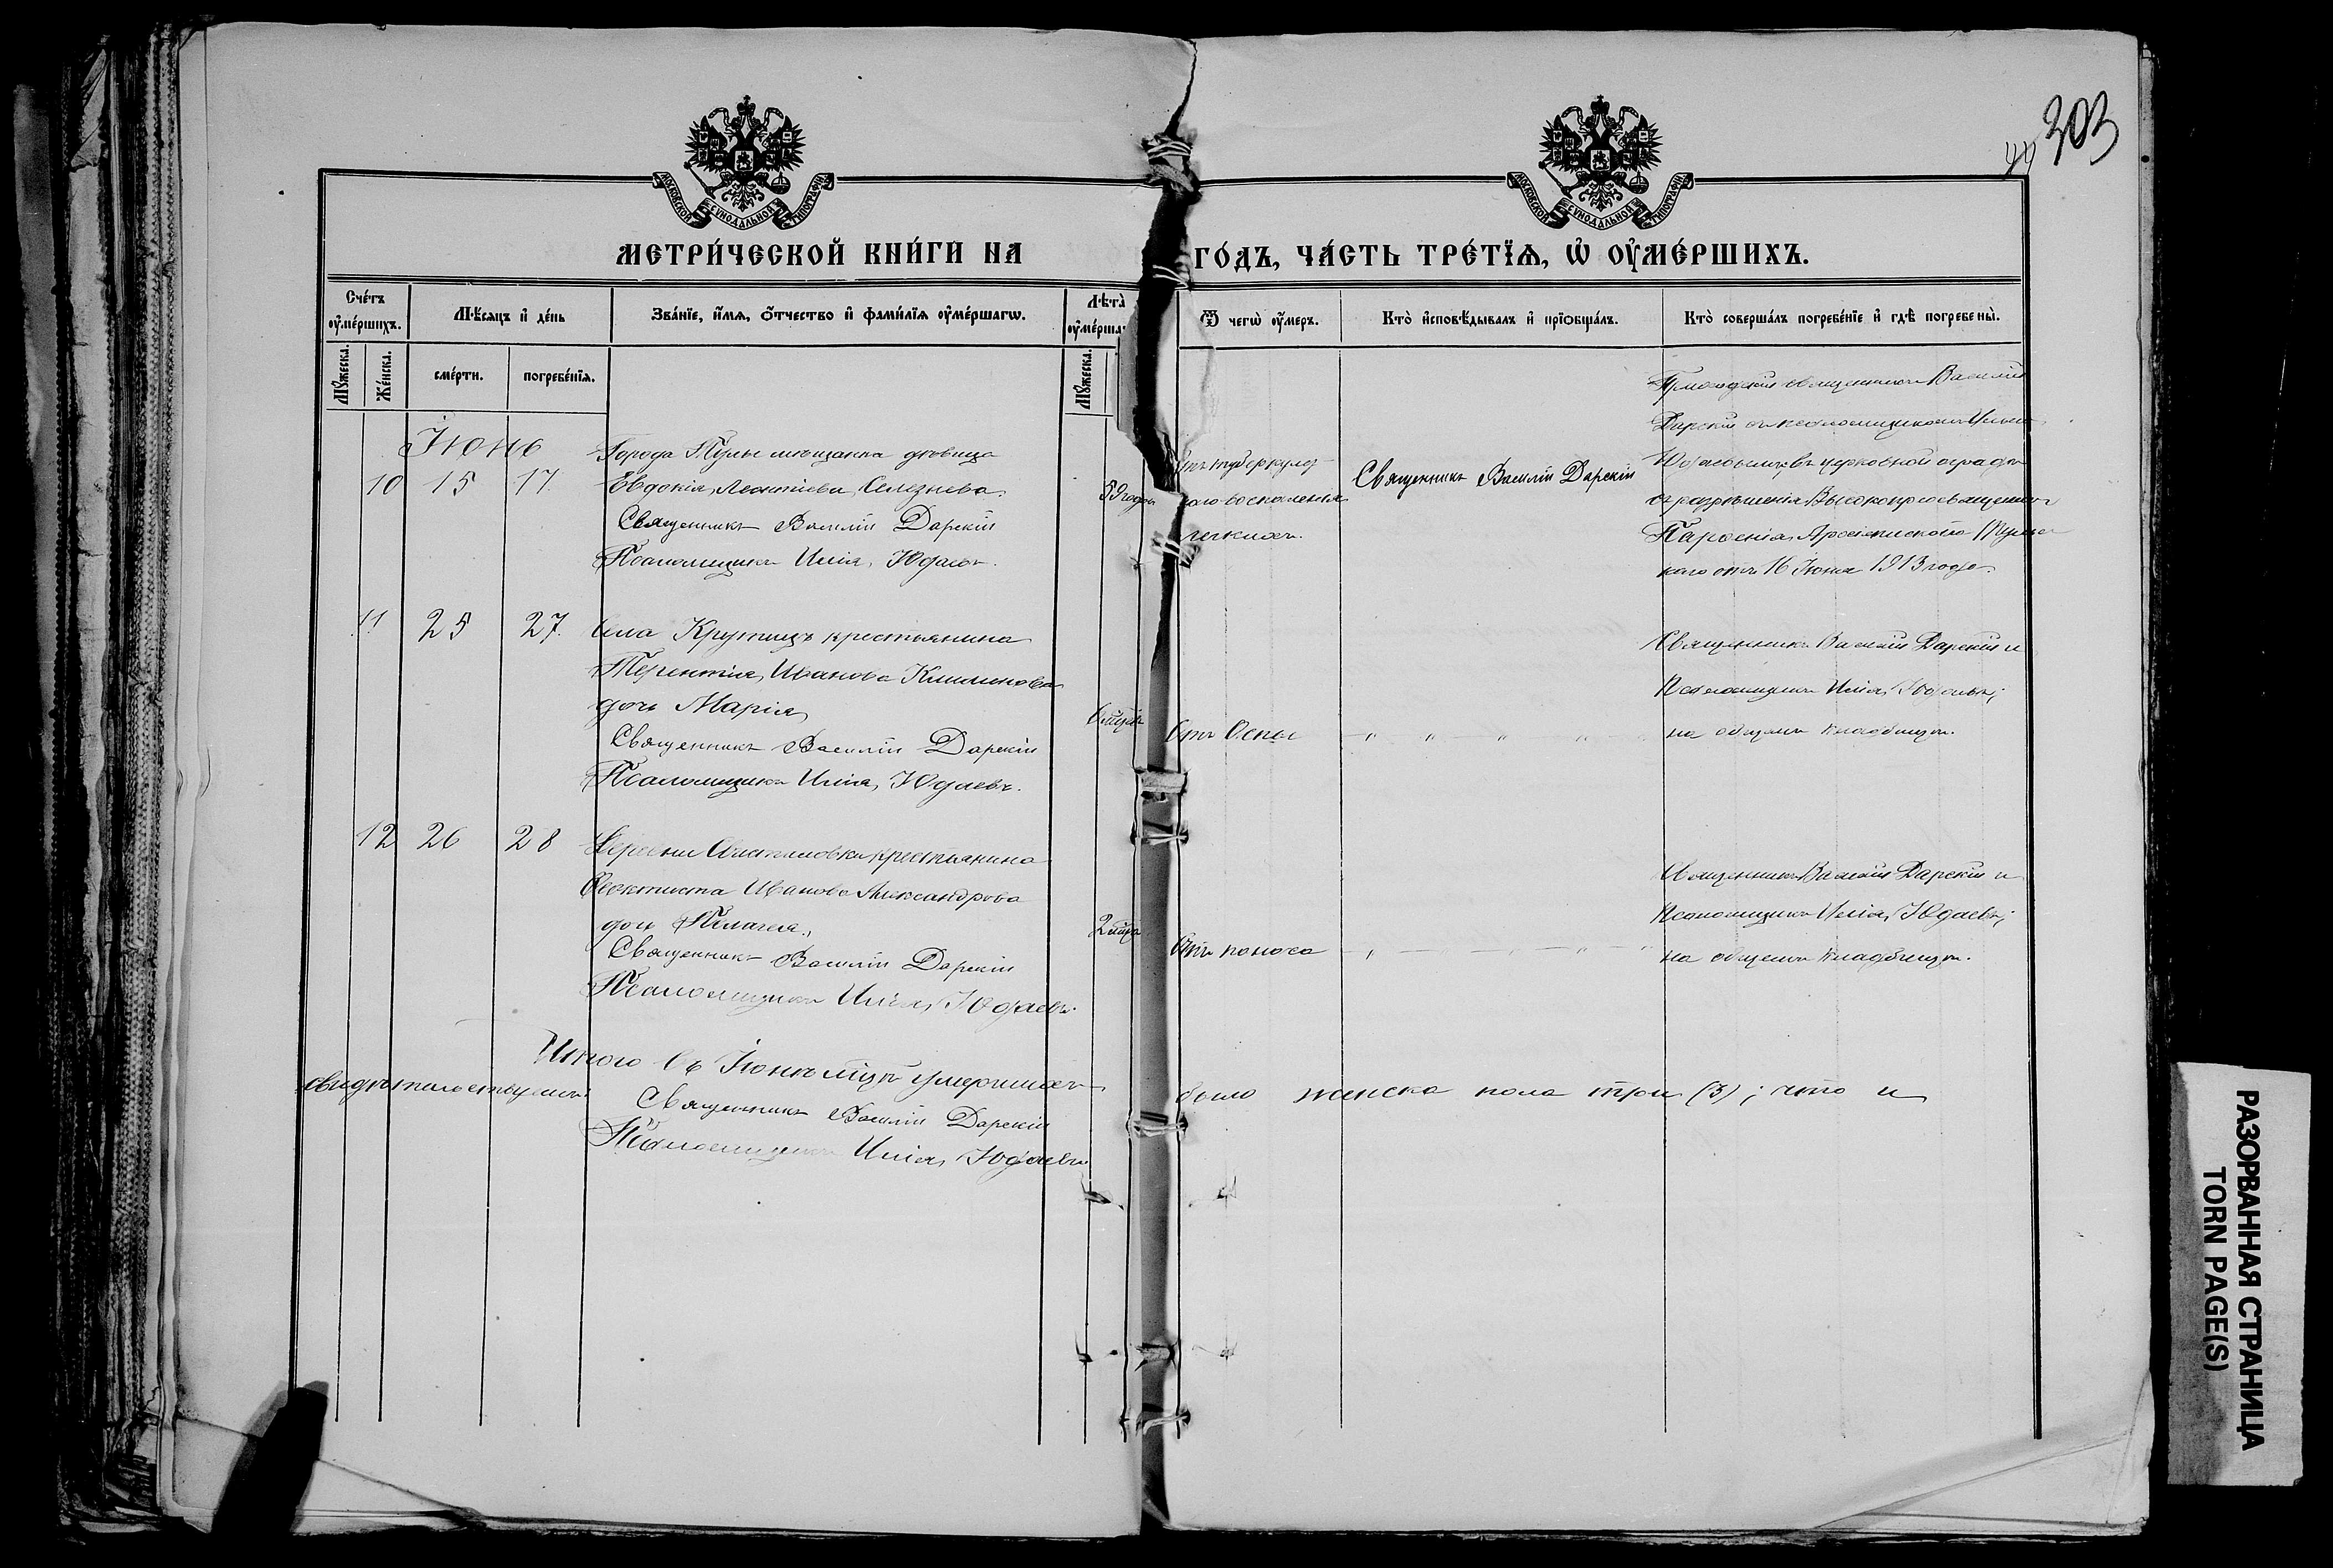 303
44
МОСКОВСКОЙ СѴНОДАЛЬНОЙ ТИПОГРАФІИ
МОСКОВСКОЙ СѴНОДАЛЬНОЙ ТИПОГРАФІИ
МЕТРИ́ЧЕСКОЙ КНИ́ГИ НА ГО́ДЪ, ЧА́СТЬ ТРЕ́ТЇѦ, Ѡ҆ ОУ҆МЕ́РШИХЪ.
Сче́тъ оу҆ме́ршихъ.
Мѣ́сяцъ и҆ де́нь
Зва́нїе, и҆́мѧ, ѻ҆́тчество и҆ фами́лїѧ оу҆ме́ршагѡ.
Лѣ́та̀
Ѿ чегѡ̀ оу҆́меръ.
Кто̀ и҆сповѣ́дывалъ и҆ прїѻбща́лъ.
Кто̀ соверша́лъ погребе́нїе и҆ гдѣ̀ погребены̀.
Мꙋ́жеска.
Же́нска.
сме́рти.
погребе́нїѧ.
Мꙋ́жеска.
Іюнь
10 15 17.
Города Тулы мѣщанка дѣвица
Евдокія Леонтіева Селезнева.
Священникъ Василій Дарскій
Псаломщикъ Илія Юдаевъ.
59 годовъ
легкихъ.
Священникъ Василій Дарскій
Приходскій священникъ Василій
Дарскій съ псаломщикомъ Иліей
Юдаевымъ въ церковной оградѣ
съ разрѣшенія Высокопреосвященнаго
Парѳенія, Архіепископа Тульс
каго отъ 16 Іюня 1913 года.
11 25 27.
Села Крутицъ крестьянина
Терентія Иванова Климанова
дочь Марія
Священникъ Василій Дарскій
Псаломщикъ Илія Юдаевъ.
Отъ Оспы
Священникъ Василій Дарскій и
Псаломщикъ Илія Юдаевъ;
на общемъ кладбищѣ.
12 26 28
крестьянина
Ѳеоктиста Иванова Александрова
дочь Пелагея.
Священникъ Василій Дарскій
Псаломщикъ Илія Юдаевъ.
Отъ поноса
Священникъ Василій Дарскій и
Псаломщикъ Илія Юдаевъ;
на общемъ кладбищѣ.
Итого въ Іюнѣ мѣсяцѣ умершихъ было женска пола три (3); что и
свидѣтельствуемъ:
Священникъ Василій Дарскій
Псаломщикъ Илія Юдаевъ
РАЗОРВАННАЯ СТРАНИЦА
TORN PAGE(S)